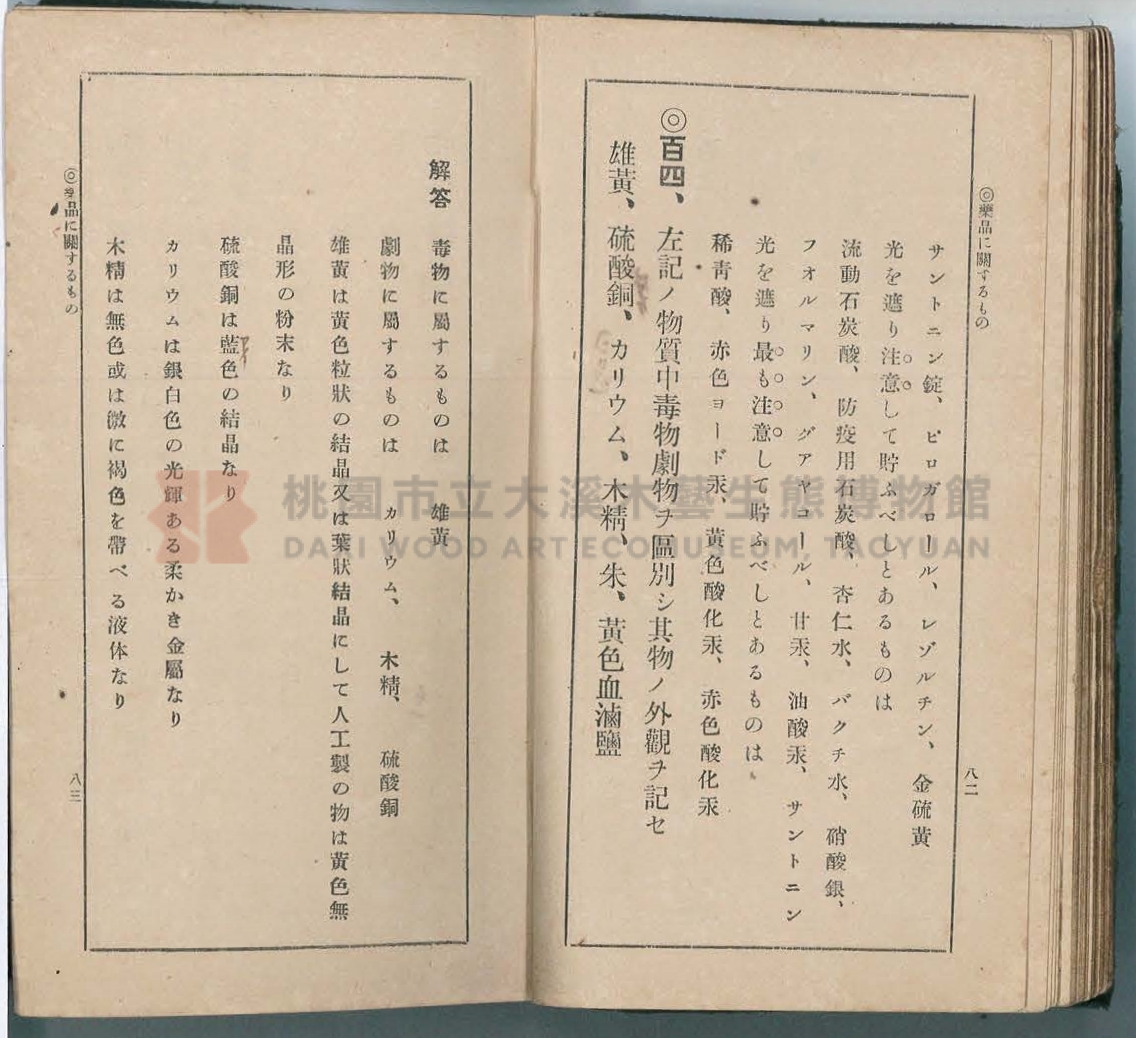 ◎藥品に關するもの
八二
サントニン錠、ピロガロール、レゾルチン、金硫黃
光を遮り注意して貯ふべしとあるものは
流動石炭酸、防疫用石炭酸、杏仁水、バクチ水、硝酸銀、
フオルマリン、グアヤコール、甘汞、油酸汞、サントニン
光を遮り最も注意して貯ふべしとあるものは
稀靑酸、赤色ヨード汞、黃色酸化汞、赤色酸化汞
◎百四、左記ノ物質中毒物劇物ヲ區別シ其物ノ外觀ヲ記セ
雄黃、硫酸銅、カリウム、木精、朱、黃色血滷鹽
解答 毒物に屬するものは 雄黃
劇物に屬するものは カリウム、 木精、 硫酸銅
雄黃は黃色粒狀の結晶又は葉狀結晶にして人工製の物は黃色無
晶形の粉末なり
硫酸銅は藍色の結晶なり
カリウムは銀白色の光輝ある柔かき金屬なり
木精は無色或は微に褐色を帶べる液体なり
◎藥品に關するもの
八三
桃園市立大溪木藝生態博物館
DAXI WOOD ART ECOMUSEUM, TAOYUAN